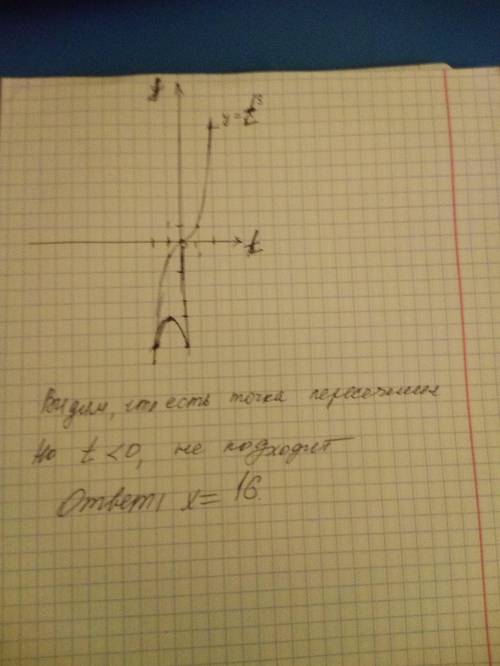 y = t³
t
Видим, что есть точка пересечения
Но t < 0, не подходит
Ответ: x = 16.